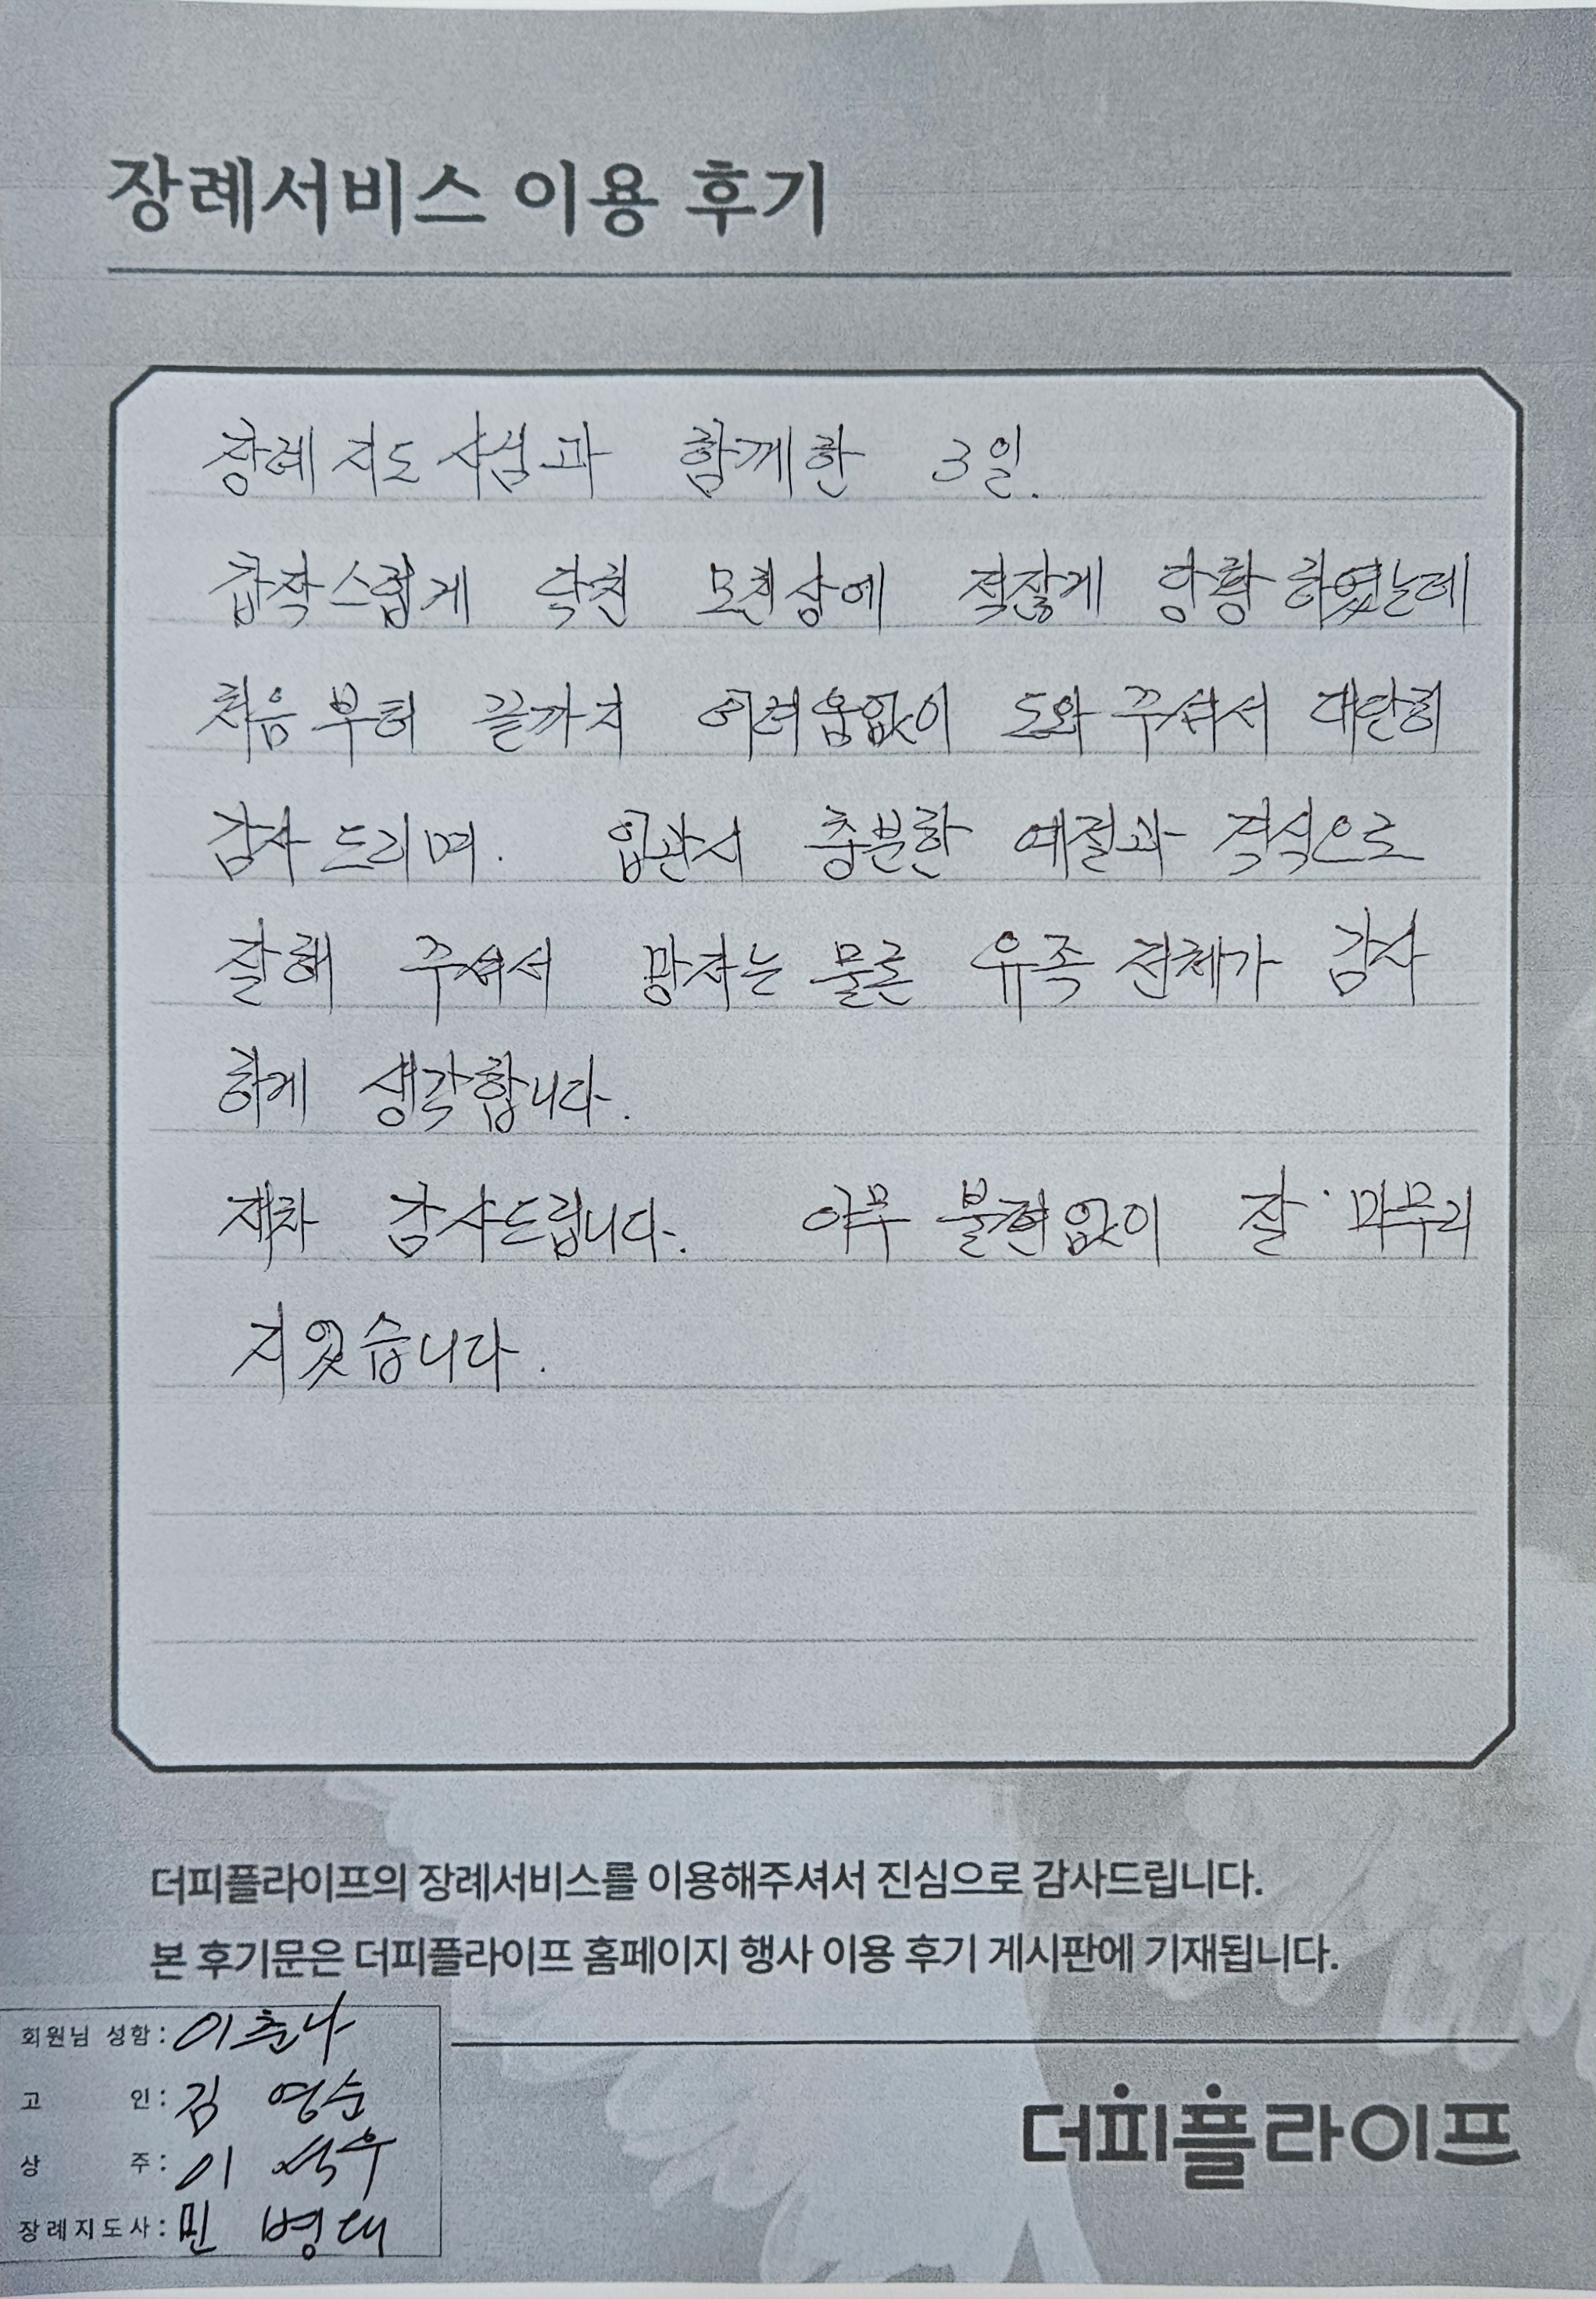 장례서비스 이용 후기
장례지도사님과 함께한 3일.
갑작스럽게 닥친 모친상에 적잖게 당황하였는데
처음부터 끝까지 어려움없이 도와주셔서 대단히
감사드리며. 입관시 충분한 예절과 격식으로
잘해 주셔서 망자는 물론 유족 전체가 감사
하게 생각합니다.
재차 감사드립니다. 아무 불편없이 잘 마무리
지었습니다.
더피플라이프의 장례서비스를 이용해주셔서 진심으로 감사드립니다.
본 후기문은 더피플라이프 홈페이지 행사 이용 후기 게시판에 기재됩니다.
회원님 성함: 이춘나
고 인: 김 영순
상 주: 이 석우
장례지도사: 민 병대
더피플라이프